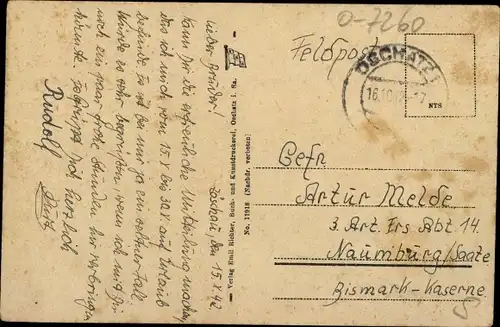 O-7260
Feldpost
OSCHATZ
16.10.
NTS
Oschatz, den 15.X.42
Lieber Bruder!
Kann Dir die erfreuliche Mitteilung machen,
das ich mich vom 15.X. bis 30.X. auf Urlaub
befinde. Es ist bei mir ja ein seltner Fall.
Würde es sehr begrüßen, wenn ich mit Dir
noch ein paar frohe Stunden hier verbringen
könnte. Es grüßt Dich herzlich
Rudolf
Verlag Emil Richter, Buch- und Kunstdruckerei, Oschatz i. Sa.
No. 11918 (Nachdr. verboten)
Gefr.
Artur Melde
3. Art. Ers. Abt. 14
Naumburg/Saale
Bismark-Kaserne